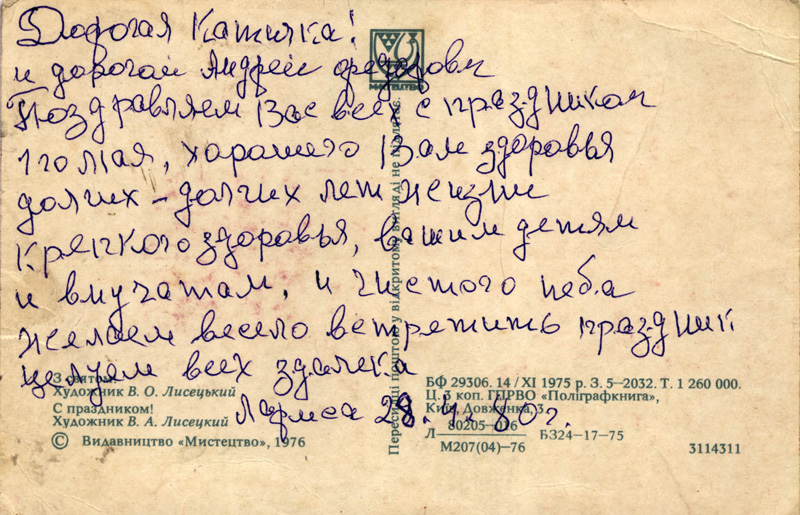 Дорогая Катичка!
и дорогой Андрей федорович
Поздравляем Вас всех с праздником
1 го мая, харошего Вам здоровья
долгих - долгих лет жизни
Крепкого здоровья, вашим детям
и внучатам, и чистого неба
желаем весело встретить праздник
целуем всех здалека
Лариса 28. 4. 80 г.
МИСТЕЦТВО
Пересилці поштою у відкритому вигляді не підлягає.
З святом!
Художник В. О. Лисецький
С праздником!
Художник В. А. Лисецкий
© Видавництво «Мистецтво», 1976
БФ 29306. 14 / XI 1975 р. З. 5–2032. Т. 1 260 000.
Ц. 3 коп. ГПРВО «Поліграфкнига»,
Київ, Довженка, 3
80205–016
Л БЗ24–17–75
М207(04)–76
3114311